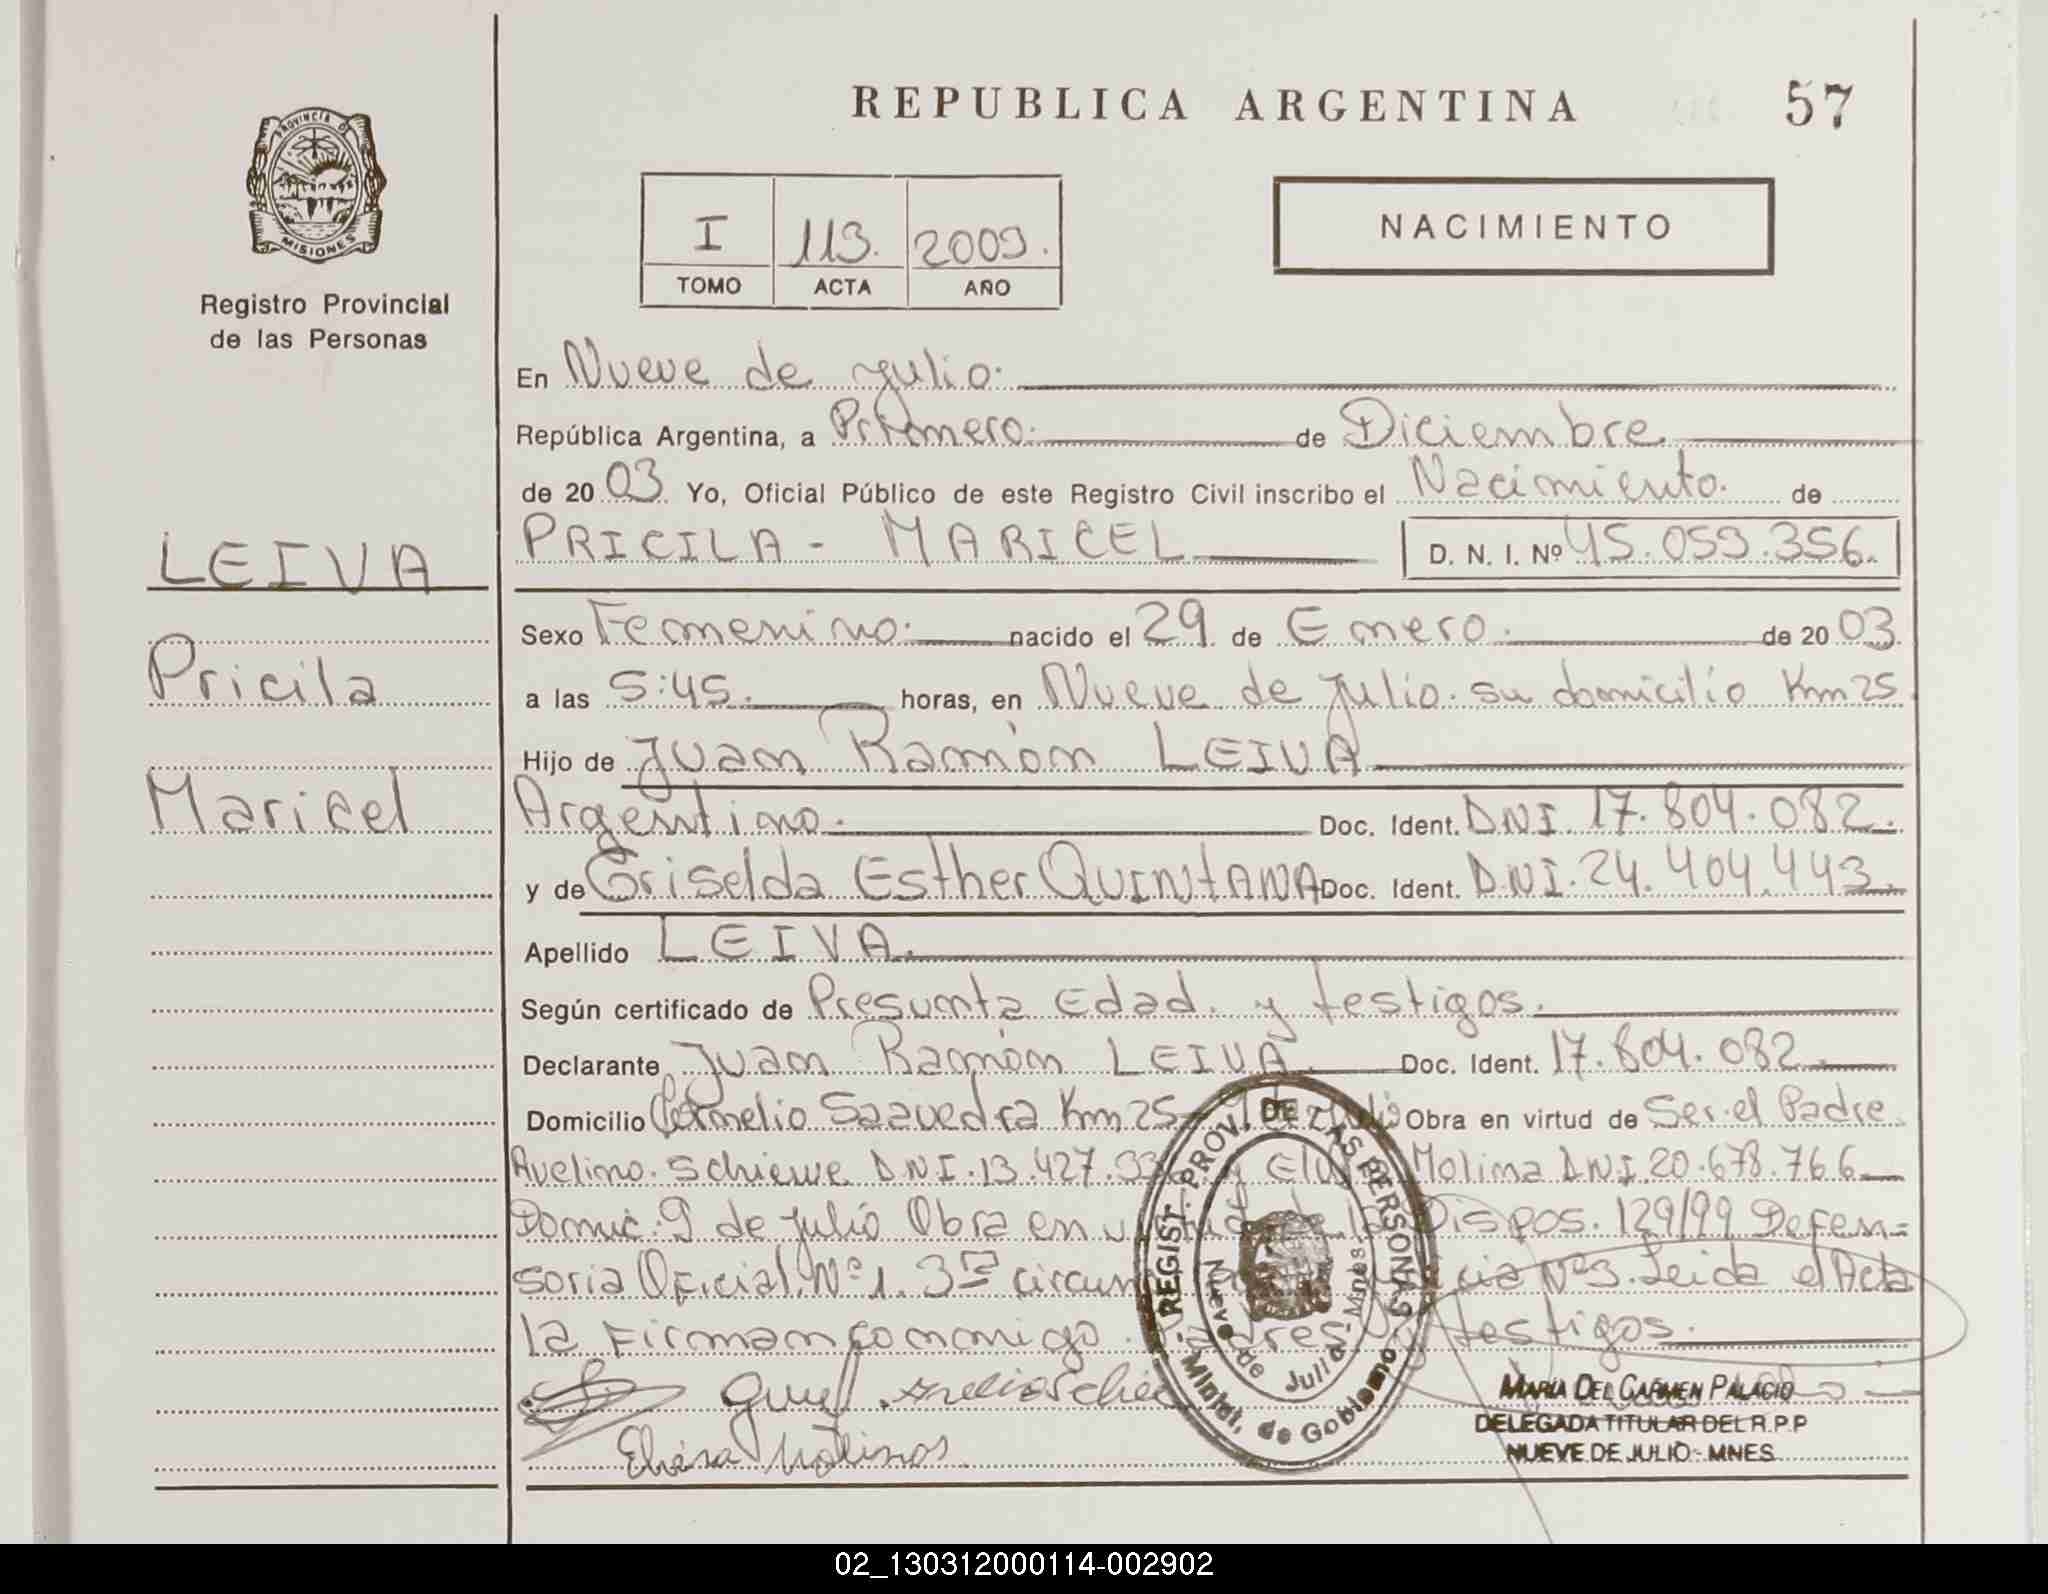 REPUBLICA ARGENTINA 57
PROVINCIA DE
MISIONES
Registro Provincial
de las Personas
I 113. 2003.
TOMO ACTA AÑO
NACIMIENTO
En Nueve de julio.
República Argentina, a Primero. de Diciembre
de 20 03 Yo, Oficial Público de este Registro Civil inscribo el Nacimiento. de
LEIVA
Pricila
Maricel
PRICILA - MARICEL D. N. I. Nº 45.059.356.
Sexo Femenino. nacido el 29 de Enero. de 20 03.
a las 5:45. horas, en Nueve de Julio. su domicilio Km 25
Hijo de Juan Ramón LEIVA
Argentino. Doc. Ident. DNI. 17.804.082.
y de Griselda Esther QUINTANA Doc. Ident. DNI. 24.404.443.
Apellido LEIVA.
Según certificado de Presunta Edad. y testigos.
Declarante Juan Ramón LEIVA Doc. Ident. 17.804.082
Domicilio Cornelio Saavedra Km 25 Obra en virtud de Ser el Padre
Avelino. Schiewe DNI. 13.427. y Molina DNI. 20.678.766
Domic. 9 de julio Obra en Dispos. 129/99 Defen=
soria Oficial. Nº 1. 3ra circun Nº 3. Leida el Acta
la Firman conmigo. Padres y testigos.
REGIST. PROV. DE LAS PERSONAS
Nueve de Julio - Mnes.
Minist. de Gobierno
Elvira Molinas
MARIA DEL CARMEN PALACIO
DELEGADA TITULAR DEL R.P.P
NUEVE DE JULIO - MNES.
02_130312000114-002902